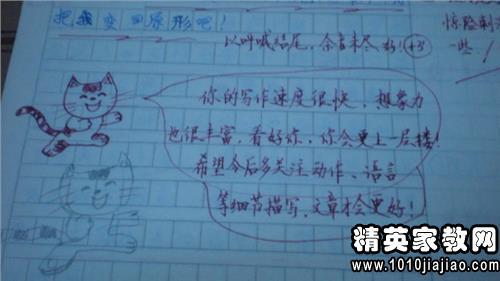 把我变回原形吧！
以呼喊结尾，余音未尽好！+3
惊险刺
一些！
你的写作速度很快，想象力
也很丰富，看好你，你会更上一层楼！
希望今后多关注动作、语言
等细节描写，文章才会更好！
精英家教网
www.1010jiajiao.com